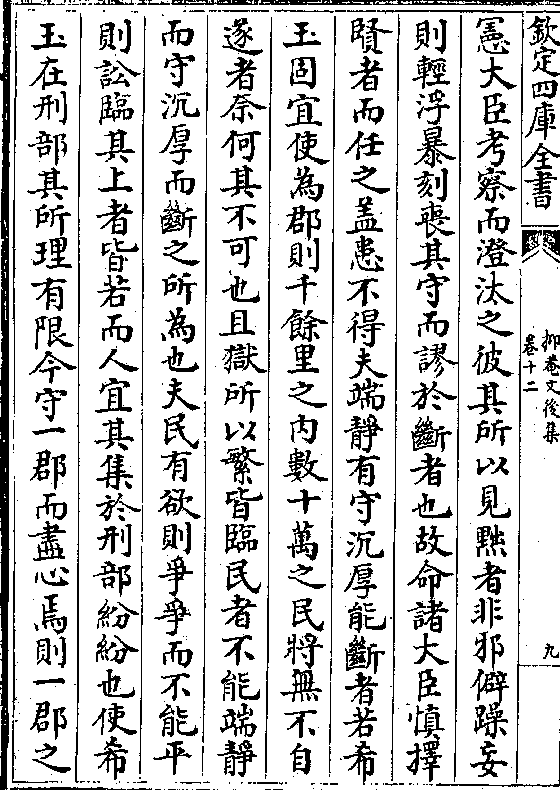 欽定四庫全書
抑菴文後集
卷十二
九
憲大臣考察而澄汰之彼其所以見黜者非邪僻躁妄
則輕浮暴刻喪其守而謬於斷者也故命諸大臣慎擇
賢者而任之盖患不得夫端靜有守沉厚能斷者若希
玉固宜使為郡則千餘里之内數十萬之民將無不自
遂者奈何其不可也且獄所以繁皆臨民者不能端靜
而守沉厚而斷之所為也夫民有欲則爭爭而不能平
則訟臨其上者皆若而人宜其集於刑部紛紛也使希
玉在刑部其所理有限今守一郡而盡心焉則一郡之